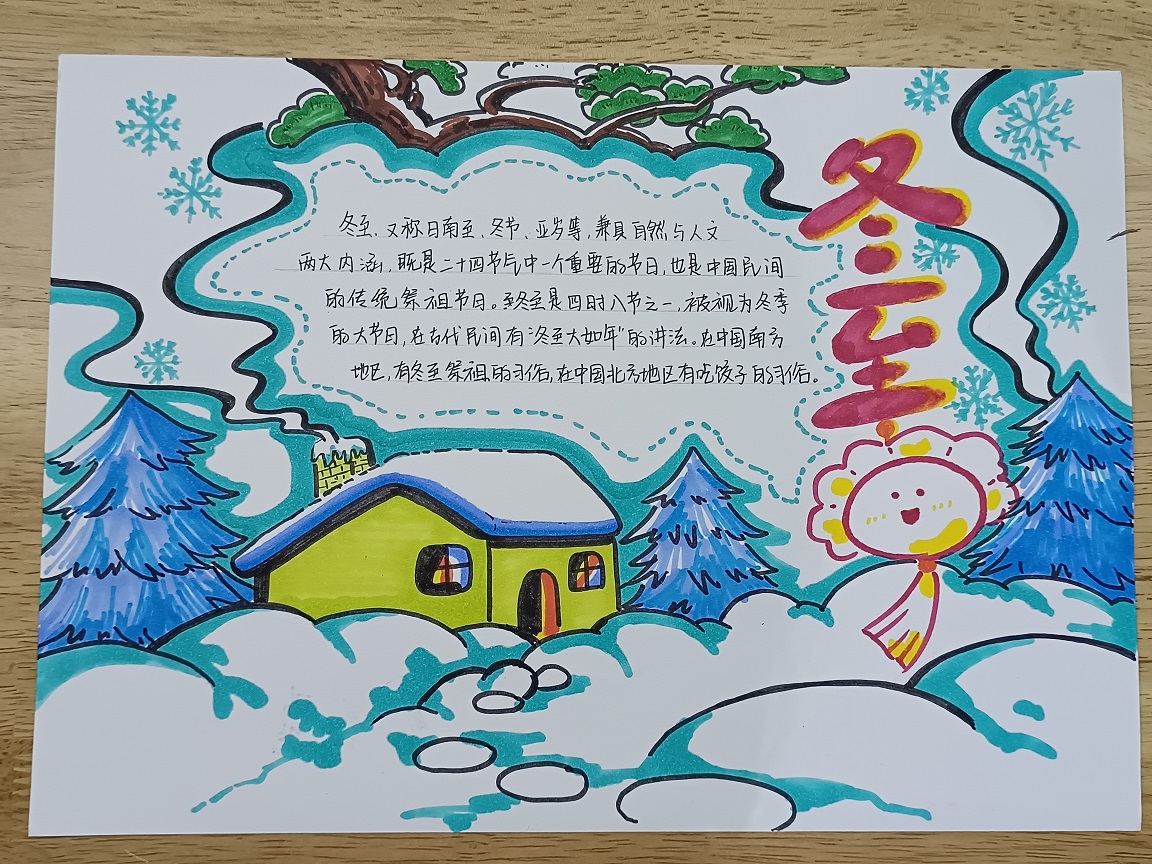 冬至
冬至，又称日南至、冬节、亚岁等，兼具自然与人文
两大内涵，既是二十四节气中一个重要的节日，也是中国民间
的传统祭祖节日。至冬至是四时八节之一，被视为冬季
的大节日，在古代民间有“冬至大如年”的讲法。在中国南方
地区，有冬至祭祖的习俗，在中国北方地区有吃饺子的习俗。